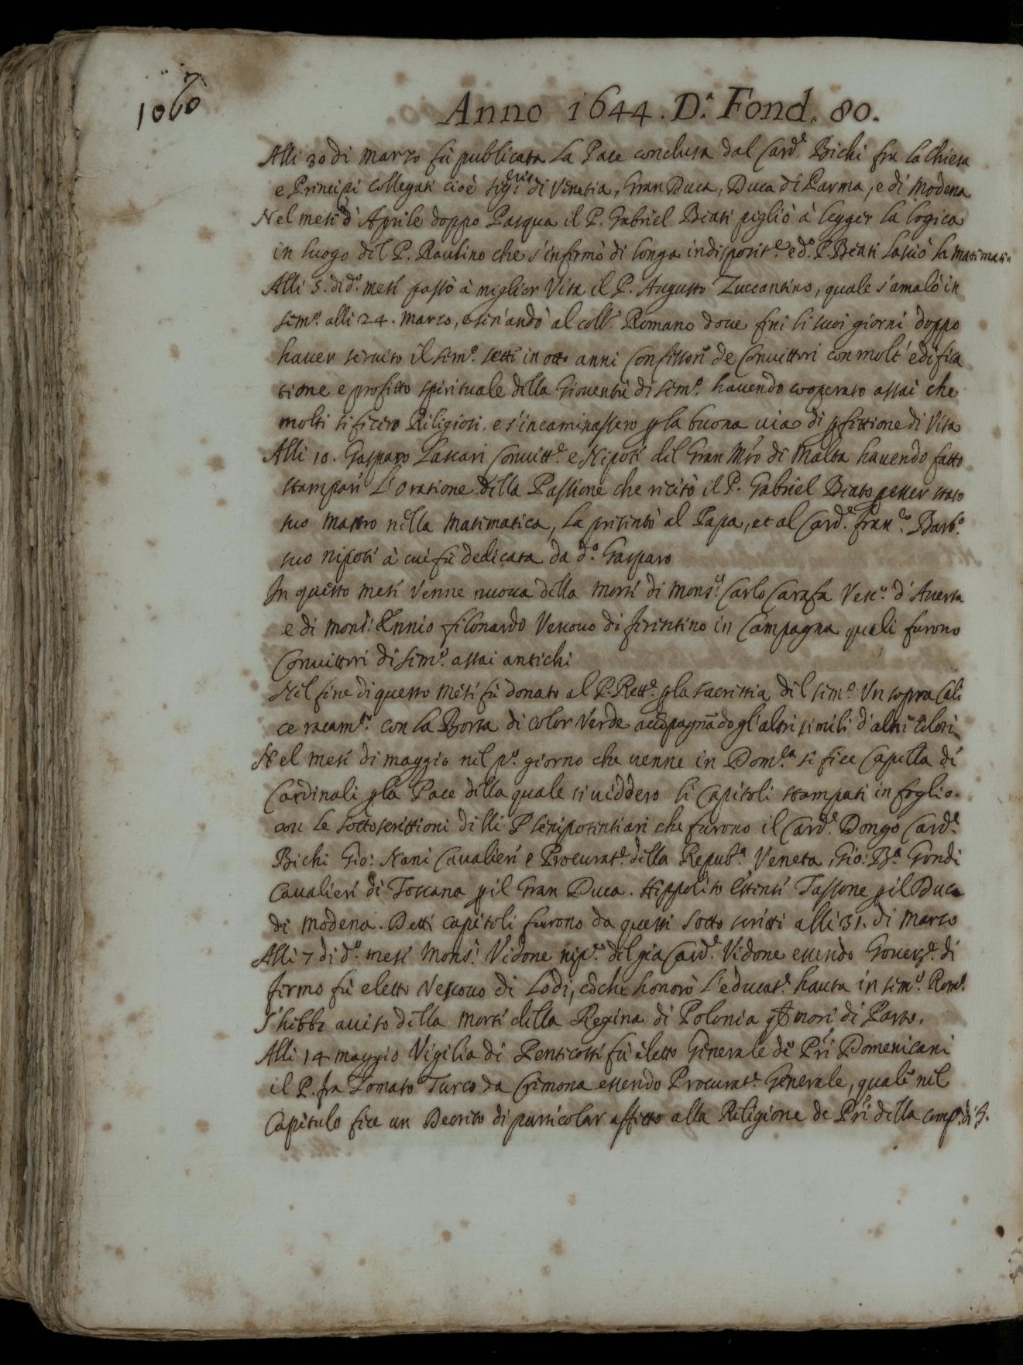 1060
Anno 1644. D.ª Fond. 80.
Alli 30 di marzo fù pubblicata la Pace conclusa dal Card.e Bichi fra la Chiesa
e Principi Collegati cioè Sig.ri di Venetia, Gran Duca, Duca di Parma, e di Modena
Nel mese d'Aprile doppo Pasqua il P. Gabriel Beati pigliò à legger la logica
in luogo del P. Raulino che s'infermò di longa indisposit.e e d.o P. Beati lasciò la
Alli 5. di d.o mese passò à miglior Vita il P. Augusto Zuccantino, quale s'amalò in
sem.o alli 24. marzo, e se n'andò al coll.o Romano dove finì li suoi giorni doppo
haver servito il sem.o sette in otto anni Confessore de Convittori con molt'edifia
tione e profitto spirituale della Gioventù di sem.o havendo cooperato assai che
molti si ficero Religiosi, e s'incaminassero p la buona via di pfettione di Vita
Alli 10. Gasparo Lascari Convitt.e e Nipote del Gran Mro di Malta havendo fatto
stampare L'Oratione della Passione che recitò il P. Gabriel Beato p esser stato
suo mastro nella matematica, la presentò al Papa, et al Card.e Fran.co Barb.o
suo nipote à cui fù dedicata da d.o Gasparo
In questo mese venne nuova della morte di mons.r Carlo Carafa Vesc.o d'Aversa
e di mons.r Ennio filonardo Vescovo di firentino in Campagna quali furono
Convittori di sem.o assai antichi
Nel fine di questo mese fù donato al P. Rett.e p la sacristia del sem.o Un sopra Cali
ce racam.to con la Borsa di color Verde acc͞opagn͞ado gl'altri simili d'altri Colori
Nel mese di maggio nel p.o giorno che venne in Dom.ca si fece Capella di
Cardinali p la Pace della quale si viddero li Capitoli stampati in foglio
con le sottoscrittioni delli Plenipotentiari che furono il Card.e Dongo Card.e
Bichi Gio: Nani Cavaliere e Procurat.e della Repub.ca Veneta, Gio: B.a Gondi
Cavaliere di Toscana p il Gran Duca. Hippolito Estense Tassone p il Duca
di Modena. Detti capitoli furono da questi sotto scritti alli 31. di Marzo
Alli 7 di d.o mese Mons.r Vidone nip.e del già Card.e Vidone essendo Govern.e di
fermo fù eletto Vescovo di Lodi, c͞oche honorò l'educat.e hauta in sem.o Rom.o
S'hebbe aviso della morte della Regina di Polonia morì di Parto.
Alli 14 maggio Vigilia di Pentecoste fù eletto Generale de Pri Domenicani
il P. fra Tomaso Turco da Cremona essendo Procurat.e Generale, quale nel
Capitulo fece un Decreto di particolar affetto alla Religione de Pri della comp.a di G.